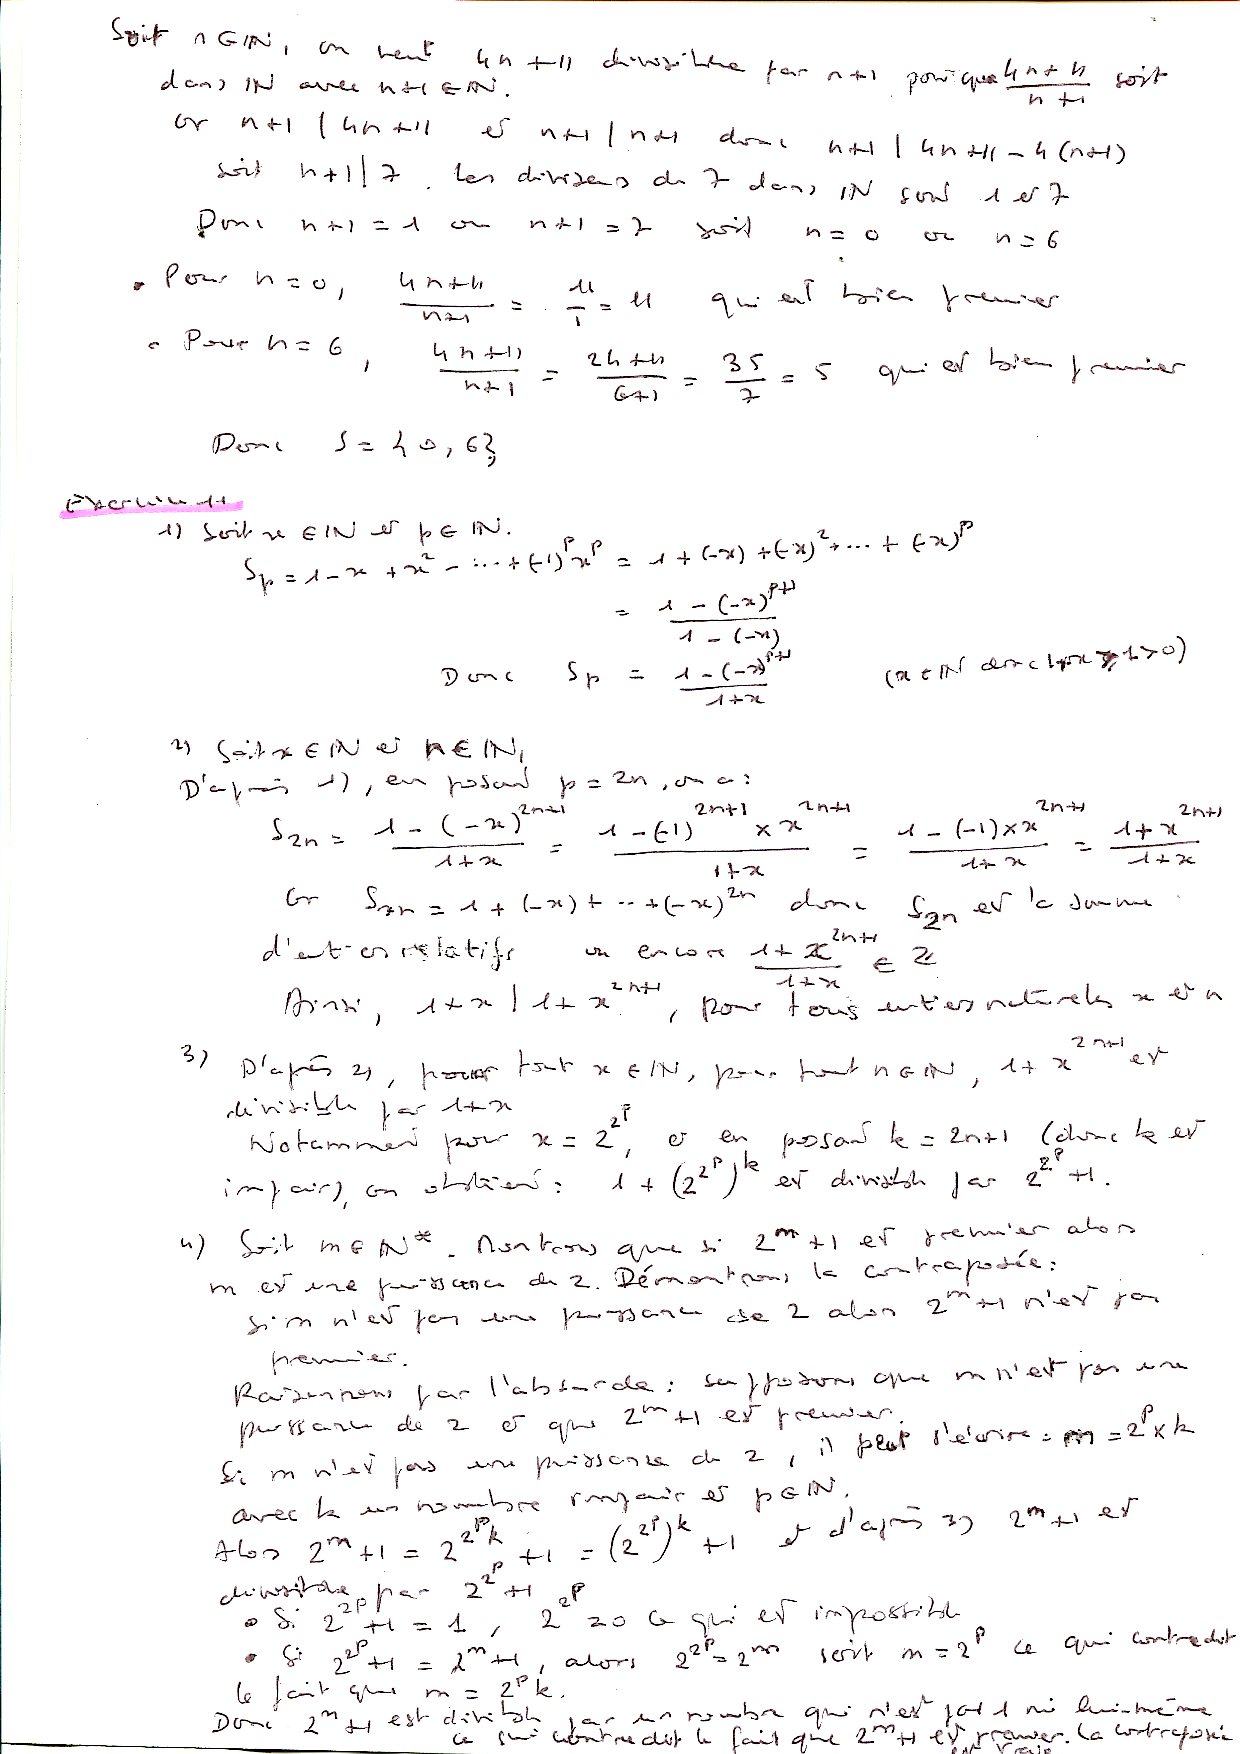 Soit n ∈ IN, on veut 4n+11 divisible par n+1 pour que (4n+11)/(n+1) soit
dans IN avec n+1 ∈ IN.
or n+1 | 4n+11 et n+1 | n+1 donc n+1 | 4n+11-4(n+1)
soit n+1 | 7. Les diviseurs de 7 dans IN sont 1 et 7
Donc n+1 = 1 ou n+1 = 7 soit n=0 ou n=6
• Pour n=0, (4n+11)/(n+1) = 11/1 = 11 qui est bien premier
• Pour n=6, (4n+11)/(n+1) = (24+11)/(6+1) = 35/7 = 5 qui est bien premier
Donc S = {0, 6}
Exercice 11
1) Soit x ∈ IN et p ∈ IN.
S_p = 1-x+x²-...+(-1)^p x^p = 1+(-x)+(-x)²+...+(-x)^p
= (1-(-x)^(p+1))/(1-(-x))
Donc S_p = (1-(-x)^(p+1))/(1+x) (x ∈ IN donc 1+x ≥ 1 > 0)
2) Soit x ∈ IN et n ∈ IN,
D'après 1), en posant p = 2n, on a :
S_2n = (1-(-x)^(2n+1))/(1+x) = (1-(-1)^(2n+1) × x^(2n+1))/(1+x) = (1-(-1)×x^(2n+1))/(1+x) = (1+x^(2n+1))/(1+x)
Or S_2n = 1+(-x)+...+(-x)^(2n) donc S_2n est la somme
d'entiers relatifs ou encore (1+x^(2n+1))/(1+x) ∈ Z
Ainsi, 1+x | 1+x^(2n+1), pour tous entiers naturels x et n
3) D'après 2), pour tout x ∈ IN, pour tout n ∈ IN, 1+x^(2n+1) est
divisible par 1+x
Notamment pour x = 2^(2^p), et en posant k = 2n+1 (donc k est
impair), on obtient : 1+(2^(2^p))^k est divisible par 2^(2^p)+1.
4) Soit m ∈ IN*. Montrons que si 2^m+1 est premier alors
m est une puissance de 2. Démontrons la contraposée :
si m n'est pas une puissance de 2 alors 2^m+1 n'est pas
premier.
Raisonnons par l'absurde : supposons que m n'est pas une
puissance de 2 et que 2^m+1 est premier.
Si m n'est pas une puissance de 2, il peut s'écrire : m = 2^p × k
avec k un nombre impair et p ∈ IN.
Alors 2^m+1 = 2^(2^p k)+1 = (2^(2^p))^k+1 et d'après 3) 2^m+1 est
divisible par 2^(2^p)+1
• Si 2^(2^p)+1 = 1, 2^(2^p) = 0 ce qui est impossible
• Si 2^(2^p)+1 = 2^m+1, alors 2^(2^p) = 2^m soit m = 2^p ce qui contredit
le fait que m = 2^p k.
Donc 2^m+1 est divisible par un nombre qui n'est pas 1 ni lui-même
ce qui contredit le fait que 2^m+1 est premier. La contraposée
est vraie